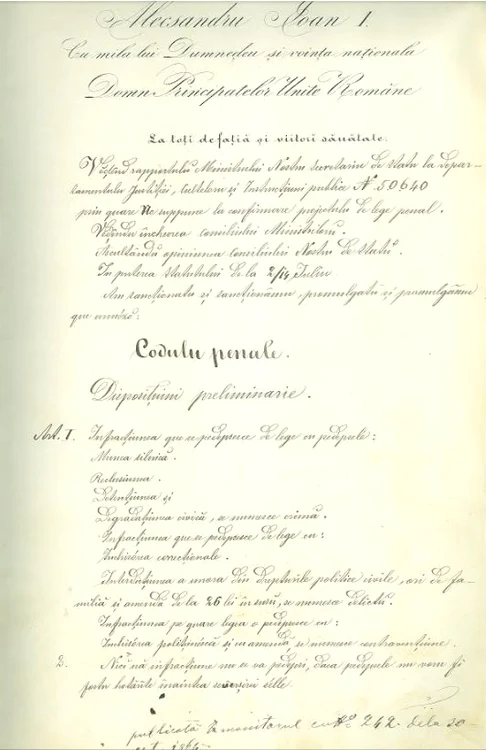 Alecsandru Ioan I.
Cu mila lui Dumnedeu si vointa nationala
Domn Principatelor Unite Române
La toti de față și viitori sănătate.
Vědênd rapportulu Ministrului Nostru secretariu de statu la Depar-
tamentulu Justiției, cultelor și Instrucțiunei publice Nº 50640
prin quare Ne suppune la confirmare projectulu de lege penal.
Vědêndu încheerea consiliului Ministriloru.
Ascultându opiniunea consiliului Nostru de statu.
In puterea statutului de la 2/14 Juliu
Am sancționatu și sancționămu, promulgatu și promulgămu
que urméză:
Codulu penale.
Disposițiuni preliminarie.
Art. 1. Infracțiunea que se pedepsesce de lege cu pedepsele:
Munca silnică.
Reclusiunea.
Detențiunea și
Degradațiunea civică, se numesce crimă.
Infracțiunea que se pedepsesce de lege cu:
Inchisórea correcțională.
Interdicțiunea a unora din drepturile politice civile, ori de fa-
miliă și amenda de la 26 lei în susu, se numesce delictu.
Infracțiunea pe quare legea o pedepsesce cu:
Inchisórea polițienéscă și cu amendă se numesce contravențiune.
2. Nici uă infracțiune nu se va pedepsi, daca pedepsele nu voru fi
fostu hotărîte înaintea sevêrșirei selle.
publicată în monitorul cu Nº 242. dela 30
oct. 1864.